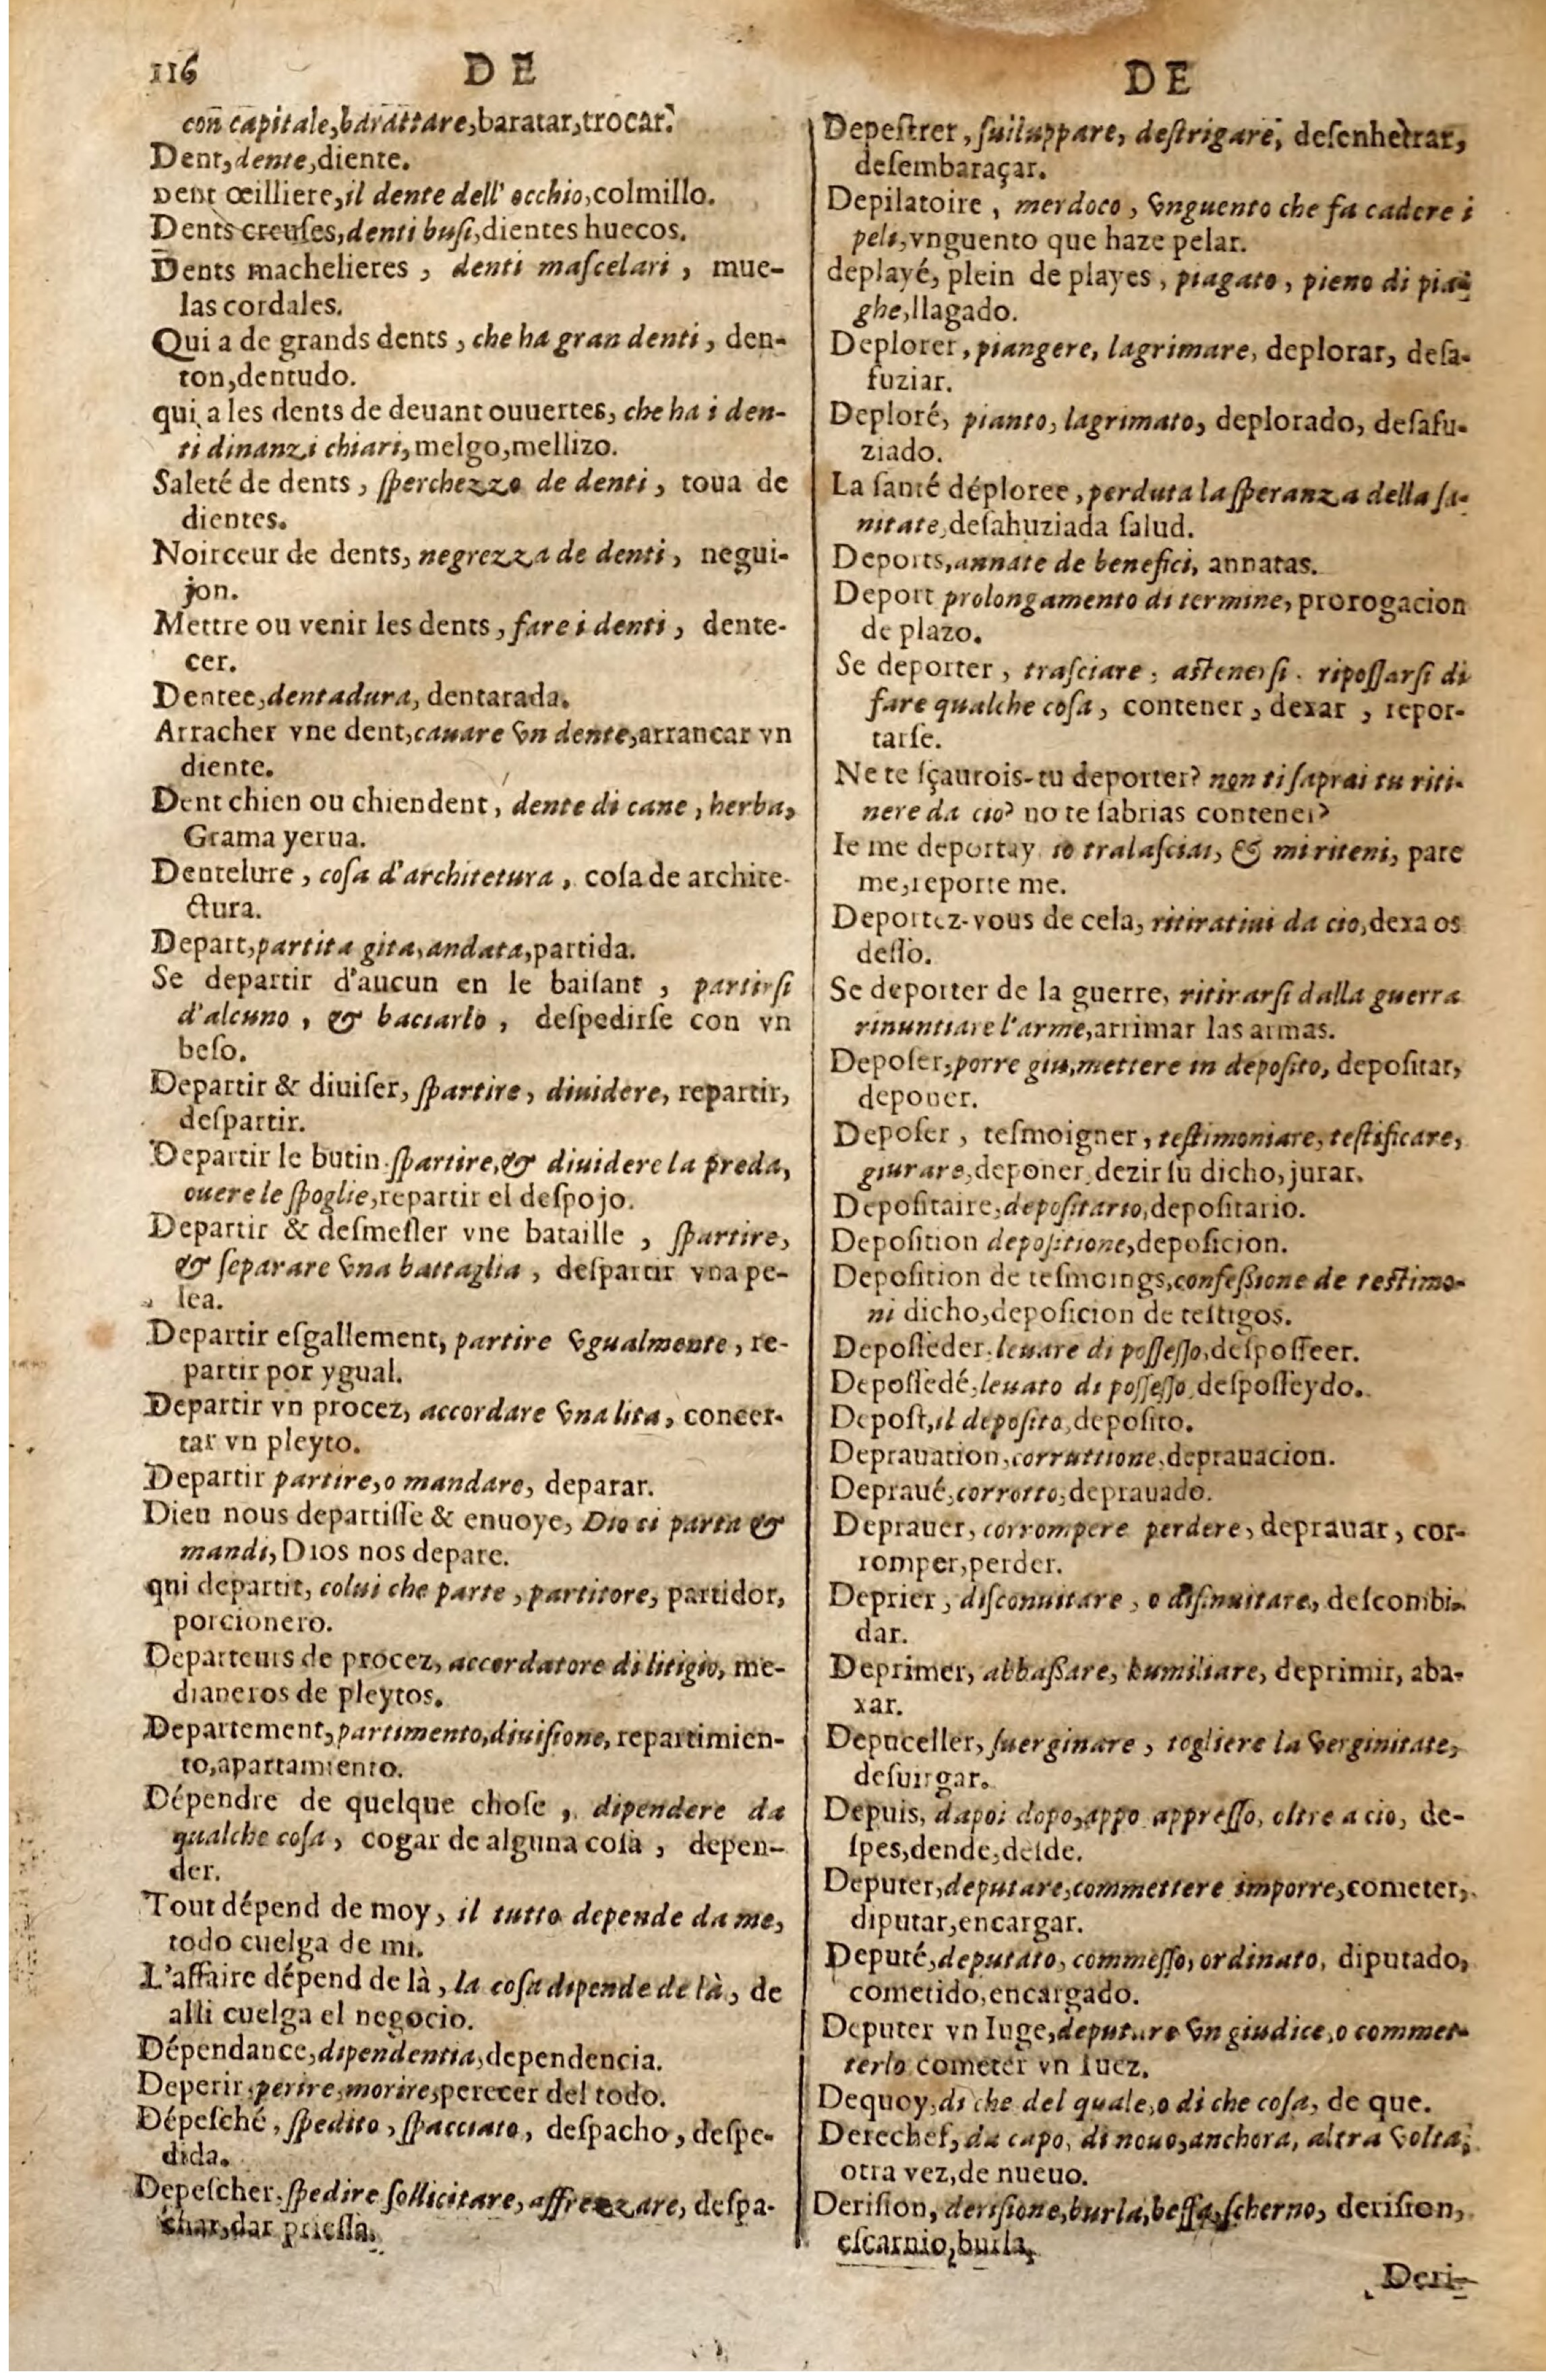 116 DE
con capitale, barattare, baratar, trocar.
Dent, dente, diente.
Dent œilliere, il dente dell' occhio, colmillo.
Dents creuſes, denti buſi, dientes huecos.
Dents machelieres, denti maſcelari, mue-
las cordales.
Qui a de grands dents, che ha gran denti, den-
ton, dentudo.
qui a les dents de deuant ouuertes, che ha i den-
ti dinanzi chiari, melgo, mellizo.
Saleté de dents, ſperchezzo de denti, toua de
dientes.
Noirceur de dents, negrezza de denti, negui-
jon.
Mettre ou venir les dents, fare i denti, dente-
cer.
Dentee, dentadura, dentarada.
Arracher vne dent, cauare vn dente, arrancar vn
diente.
Dent chien ou chiendent, dente di cane, herba,
Grama yerua.
Dentelure, coſa d'architetura, coſa de archite-
ctura.
Depart, partita gita, andata, partida.
Se departir d'aucun en le baiſant, partirſi
d'alcuno, & baciarlo, deſpedirſe con vn
beſo.
Departir & diuiſer, ſpartire, diuidere, repartir,
deſpartir.
Departir le butin. ſpartire, & diuidere la preda,
ouere le ſpoglie, repartir el deſpojo.
Departir & deſmeſler vne bataille, ſpartire,
& ſeparare vna battaglia, deſpartir vna pe-
lea.
Departir eſgallement, partire vgualmente, re-
partir por ygual.
Departir vn procez, accordare vna lita, concer-
tar vn pleyto.
Departir partire, o mandare, deparar.
Dieu nous departiſſe & enuoye, Dio ci parta &
mandi, Dios nos depare.
qui departit, colui che parte, partitore, partidor,
porcionero.
Departeurs de procez, accordatore di litigio, me-
dianeros de pleytos.
Departement, partimento, diuiſione, repartimien-
to, apartamiento.
Dépendre de quelque choſe, dipendere da
qualche coſa, cogar de alguna coſa, depen-
der.
Tout dépend de moy, il tutto depende da me,
todo cuelga de mi.
L'affaire dépend de là, la coſa dipende de là, de
alli cuelga el negocio.
Dépendance, dipendentia, dependencia.
Deperir, perire, morire, perecer del todo.
Dépeſché, ſpedito, ſpacciato, deſpacho, deſpe-
dida.
Depeſcher, ſpedire ſollicitare, affrezzare, deſpa-
char, dar prieſſa.
DE
Depeſtrer, ſuiluppare, deſtrigare, deſenhetrar,
deſembaraçar.
Depilatoire, merdoco, vnguento che fa cadere i
peli, vnguento que haze pelar.
deplayé, plein de playes, piagato, pieno di pia-
ghe, llagado.
Deplorer, piangere, lagrimare, deplorar, deſa-
fuziar.
Deploré, pianto, lagrimato, deplorado, deſafu-
ziado.
La ſanté déploree, perduta la ſperanza della ſa-
nitate, deſahuziada ſalud.
Deports, annate de benefici, annatas.
Deport prolongamento di termine, prorogacion
de plazo.
Se deporter, traſciare, aſtenerſi. ripoſſarſi di
fare qualche coſa, contener, dexar, repor-
tarſe.
Ne te ſçaurois-tu deporter? non ti ſaprai tu riti-
nere da cio? no te ſabrias contener?
Ie me deportay io tralaſciai, & mi riteni, pare
me, reporte me.
Deportez-vous de cela, ritiratiui da cio, dexa os
deſſo.
Se deporter de la guerre, ritirarſi dalla guerra
rinuntiare l'arme, arrimar las armas.
Depoſer, porre giu, mettere in depoſito, depoſitar,
deponer.
Depoſer, teſmoigner, teſtimoniare, teſtificare,
giurare, deponer, dezir ſu dicho, jurar.
Depoſitaire, depoſitario, depoſitario.
Depoſition depoſitione, depoſicion.
Depoſition de teſmoings, confeßione de teſtimo-
ni dicho, depoſicion de teſtigos.
Depoſſeder. leuare di poſſeſſo, deſpoſſeer.
Depoſſedé, leuato di poſſeſſo, deſpoſſeydo.
Depoſt, il depoſito, depoſito.
Deprauation, corruttione, deprauacion.
Depraué, corrotto, deprauado.
Deprauer, corrompere perdere, deprauar, cor-
romper, perder.
Deprier, diſconuitare, o diſinuitare, deſcombi-
dar.
Deprimer, abbaßare, humiliare, deprimir, aba-
xar.
Depuceller, ſuerginare, togliere la verginitate,
deſuirgar.
Depuis, dapoi dopo, appo appreſſo, oltre a cio, de-
ſpes, dende, deſde.
Deputer, deputare, commettere imporre, cometer,
diputar, encargar.
Deputé, deputato, commeſſo, ordinato, diputado,
cometido, encargado.
Deputer vn Iuge, deputare vn giudice, o commet-
terlo cometer vn Iuez.
Dequoy, di che del quale, o di che coſa, de que.
Derechef, da capo, di nouo, anchora, altra volta,
otra vez, de nueuo.
Deriſion, deriſione, burla, beffa, ſcherno, deriſion,
eſcarnio, burla.
Deri-